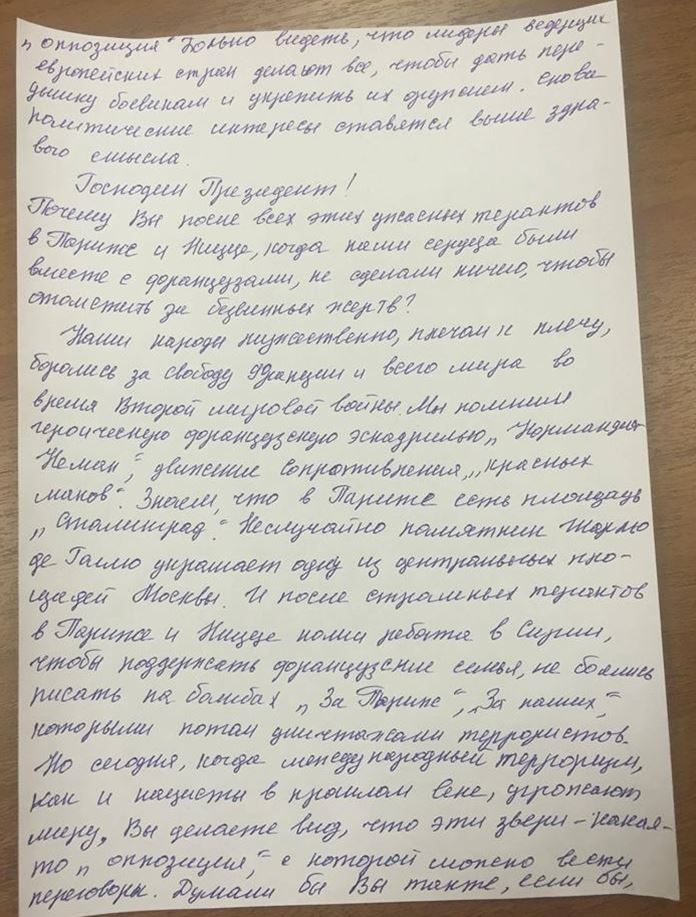 „оппозиция“ Больно видеть, что лидеры ведущих
европейских стран делают все, чтобы дать пере-
дышку боевикам и укрепить их оружием. Снова
политические интересы ставятся выше здра-
вого смысла.
Господин Президент!
Почему Вы после всех этих ужасных терактов
в Париже и Ницце, когда наши сердца были
вместе с французами, не сделали ничего, чтобы
отомстить за безвинных жертв?
Наши народы мужественно, плечом к плечу,
боролись за свободу Франции и всего мира во
время Второй мировой войны. Мы помним
героическую французскую эскадрилью „Нормандия
Неман“, движение Сопротивления, „красных
маков“. Знаем, что в Париже есть площадь
„Сталинград“. Неслучайно памятник Шарлю
де Голлю украшает одну из центральных пло-
щадей Москвы. И после страшных терактов
в Париже и Ницце наши ребята в Сирии,
чтобы поддержать французские семьи, не боялись
писать на бомбах „За Париж“, „За наших“,
которыми потом уничтожали террористов.
Но сегодня, когда международный терроризм,
как и нацисты в прошлом веке, угрожают
миру, Вы делаете вид, что эти звери – какая-
то „оппозиция“, с которой можно вести
переговоры. Думали бы Вы также, если бы,